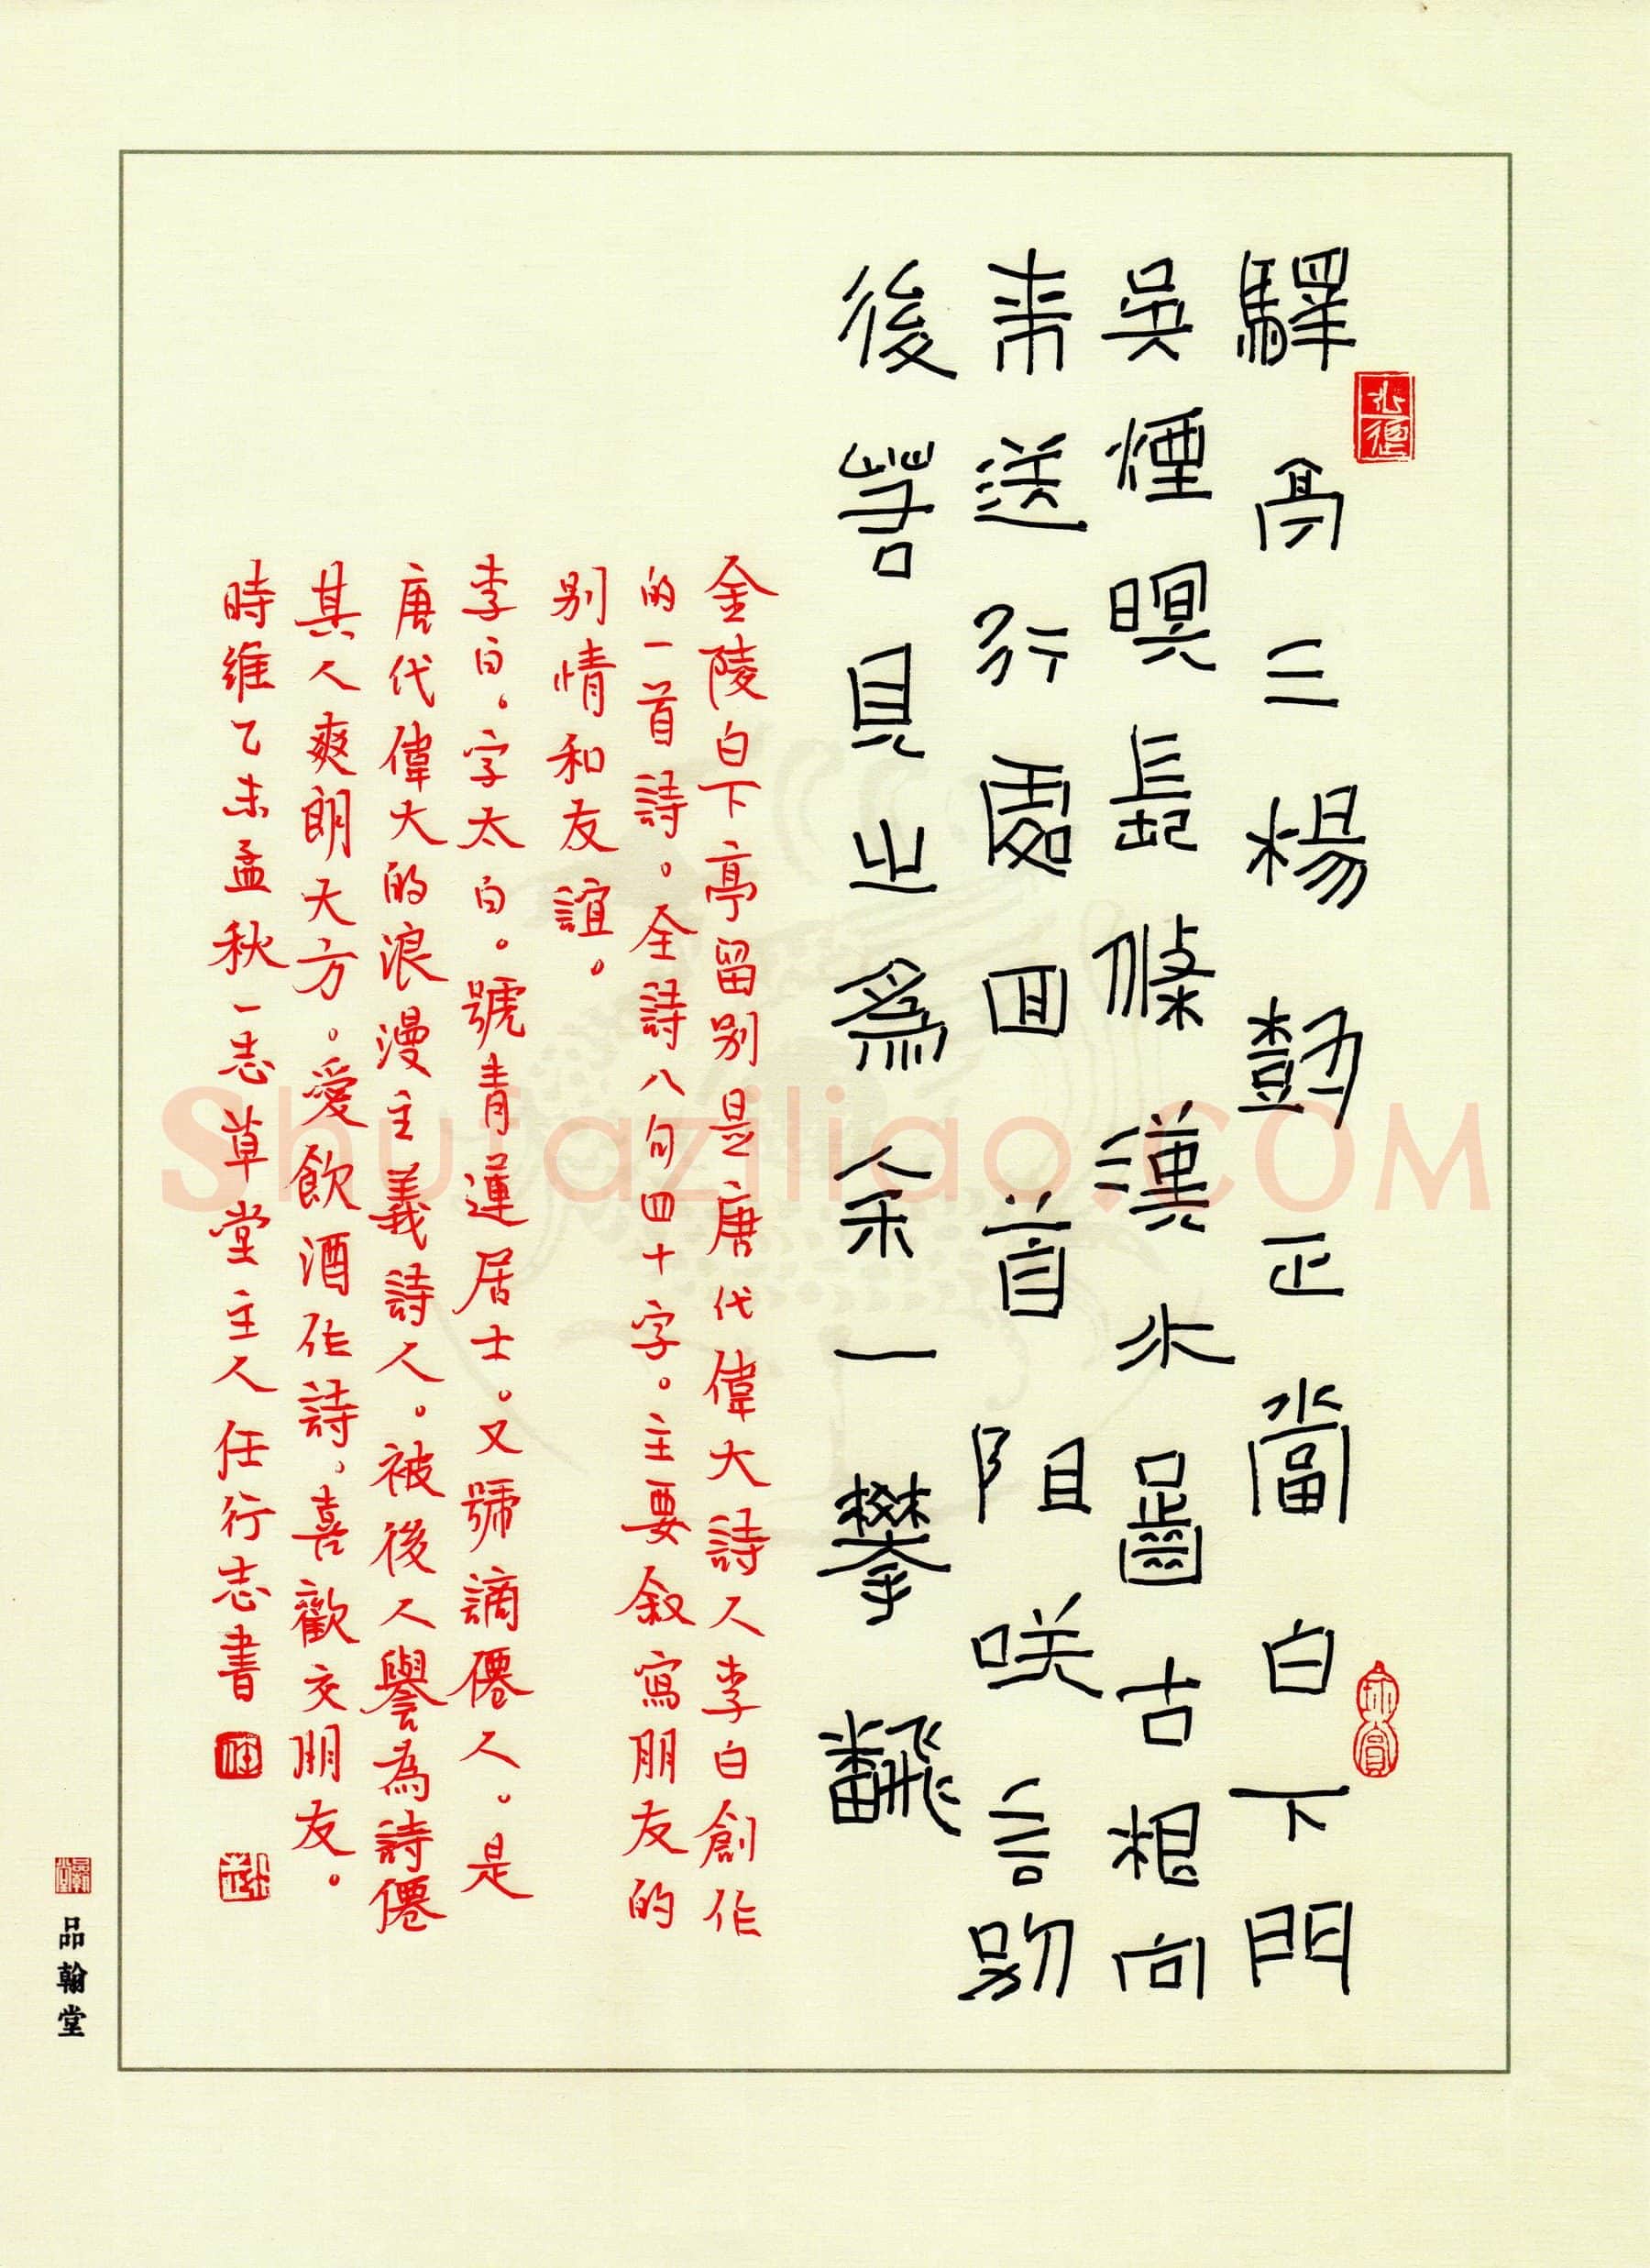 驛亭三楊樹正當白下門
吳煙暝長條漢水齧古根向
來送行處回首阻咲言別
後若見之爲余一攀飜
金陵白下亭留别是唐代偉大詩人李白創作
的一首詩。全詩八句四十字。主要叙寫朋友的
别情和友誼。
李白,字太白。號青蓮居士。又號謫僊人。是
唐代偉大的浪漫主義詩人。被後人譽為詩僊
其人爽朗大方。愛飲酒作詩,喜歡交朋友。
時維乙未孟秋一志草堂主人任行志書
品翰堂
Shufaziliao.COM